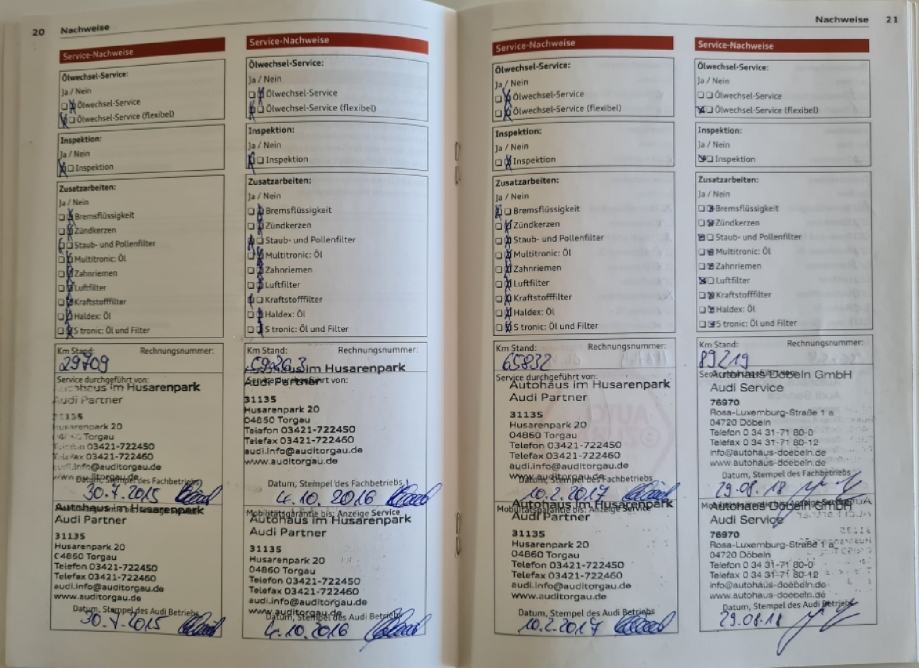 20 Nachweise
Service-Nachweise
Ölwechsel-Service:
Ja / Nein
Ölwechsel-Service
Ölwechsel-Service (flexibel)
Inspektion:
Ja / Nein
Inspektion
Zusatzarbeiten:
Ja / Nein
Bremsflüssigkeit
Zündkerzen
Staub- und Pollenfilter
Multitronic: Öl
Zahnriemen
Luftfilter
Kraftstofffilter
Haldex: Öl
S tronic: Öl und Filter
Km Stand: Rechnungsnummer:
29709
Service durchgeführt von:
Autohaus im Husarenpark
Audi Partner
31135
Husarenpark 20
04860 Torgau
Telefon 03421-722450
Telefax 03421-722460
audi.info@auditorgau.de
www.auditorgau.de
Datum, Stempel des Fachbetriebs
30.7.2015
Autohaus im Husarenpark
Audi Partner
31135
Husarenpark 20
04860 Torgau
Telefon 03421-722450
Telefax 03421-722460
audi.info@auditorgau.de
www.auditorgau.de
Datum, Stempel des Audi Betriebs
30.7.2015
Service-Nachweise
Ölwechsel-Service:
Ja / Nein
Ölwechsel-Service
Ölwechsel-Service (flexibel)
Inspektion:
Ja / Nein
Inspektion
Zusatzarbeiten:
Ja / Nein
Bremsflüssigkeit
Zündkerzen
Staub- und Pollenfilter
Multitronic: Öl
Zahnriemen
Luftfilter
Kraftstofffilter
Haldex: Öl
S tronic: Öl und Filter
Km Stand: Rechnungsnummer:
Autohaus im Husarenpark
Audi Partner
31135
Husarenpark 20
04860 Torgau
Telefon 03421-722450
Telefax 03421-722460
audi.info@auditorgau.de
www.auditorgau.de
Datum, Stempel des Fachbetriebs
4.10.2016
Mobilitätsgarantie bis: Anzeige Service
Autohaus im Husarenpark
Audi Partner
31135
Husarenpark 20
04860 Torgau
Telefon 03421-722450
Telefax 03421-722460
audi.info@auditorgau.de
www.auditorgau.de
Datum, Stempel des Audi Betriebs
4.10.2016
Nachweise 21
Service-Nachweise
Ölwechsel-Service:
Ja / Nein
Ölwechsel-Service
Ölwechsel-Service (flexibel)
Inspektion:
Ja / Nein
Inspektion
Zusatzarbeiten:
Ja / Nein
Bremsflüssigkeit
Zündkerzen
Staub- und Pollenfilter
Multitronic: Öl
Zahnriemen
Luftfilter
Kraftstofffilter
Haldex: Öl
S tronic: Öl und Filter
Km Stand: Rechnungsnummer:
65832
Service durchgeführt von:
Autohaus im Husarenpark
Audi Partner
31135
Husarenpark 20
04860 Torgau
Telefon 03421-722450
Telefax 03421-722460
audi.info@auditorgau.de
www.auditorgau.de
Datum, Stempel des Fachbetriebs
10.2.2017
Mobilitätsgarantie bis: Anzeige Service
Autohaus im Husarenpark
Audi Partner
31135
Husarenpark 20
04860 Torgau
Telefon 03421-722450
Telefax 03421-722460
audi.info@auditorgau.de
www.auditorgau.de
Datum, Stempel des Audi Betriebs
10.2.2017
Service-Nachweise
Ölwechsel-Service:
Ja / Nein
Ölwechsel-Service
Ölwechsel-Service (flexibel)
Inspektion:
Ja / Nein
Inspektion
Zusatzarbeiten:
Ja / Nein
Bremsflüssigkeit
Zündkerzen
Staub- und Pollenfilter
Multitronic: Öl
Zahnriemen
Luftfilter
Kraftstofffilter
Haldex: Öl
S tronic: Öl und Filter
Km Stand: Rechnungsnummer:
89219
Autohaus Döbeln GmbH
Audi Service
76970
Rosa-Luxemburg-Straße 1 a
04720 Döbeln
Telefon 0 34 31-71 80-0
Telefax 0 34 31-71 80-12
info@autohaus-doebeln.de
www.autohaus-doebeln.de
Datum, Stempel des Fachbetriebs
29.08.18
Autohaus Döbeln GmbH
Audi Service
76970
Rosa-Luxemburg-Straße 1 a
04720 Döbeln
Telefon 0 34 31-71 80-0
Telefax 0 34 31-71 80-12
info@autohaus-doebeln.de
www.autohaus-doebeln.de
Datum, Stempel des Audi Betriebs
29.08.18